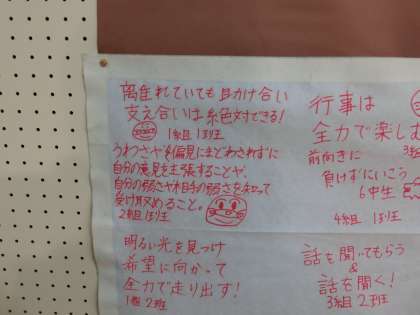 離れていても 声かけ合い
支え合いは絶対できる!
1組 1班
うわさや偏見にまどわされずに
自分の意見を主張することや、
自分の弱さや相手の弱さを知って
受け止めること。
2組 1班
明るい光を見つけ
希望に向かって
全力で走り出す!
1組 2班
行事は
全力で楽し
前向きに
負けずにいこう
6中生
4組 1班
話を聞いてもらう
&
話を聞く!
3組 2班